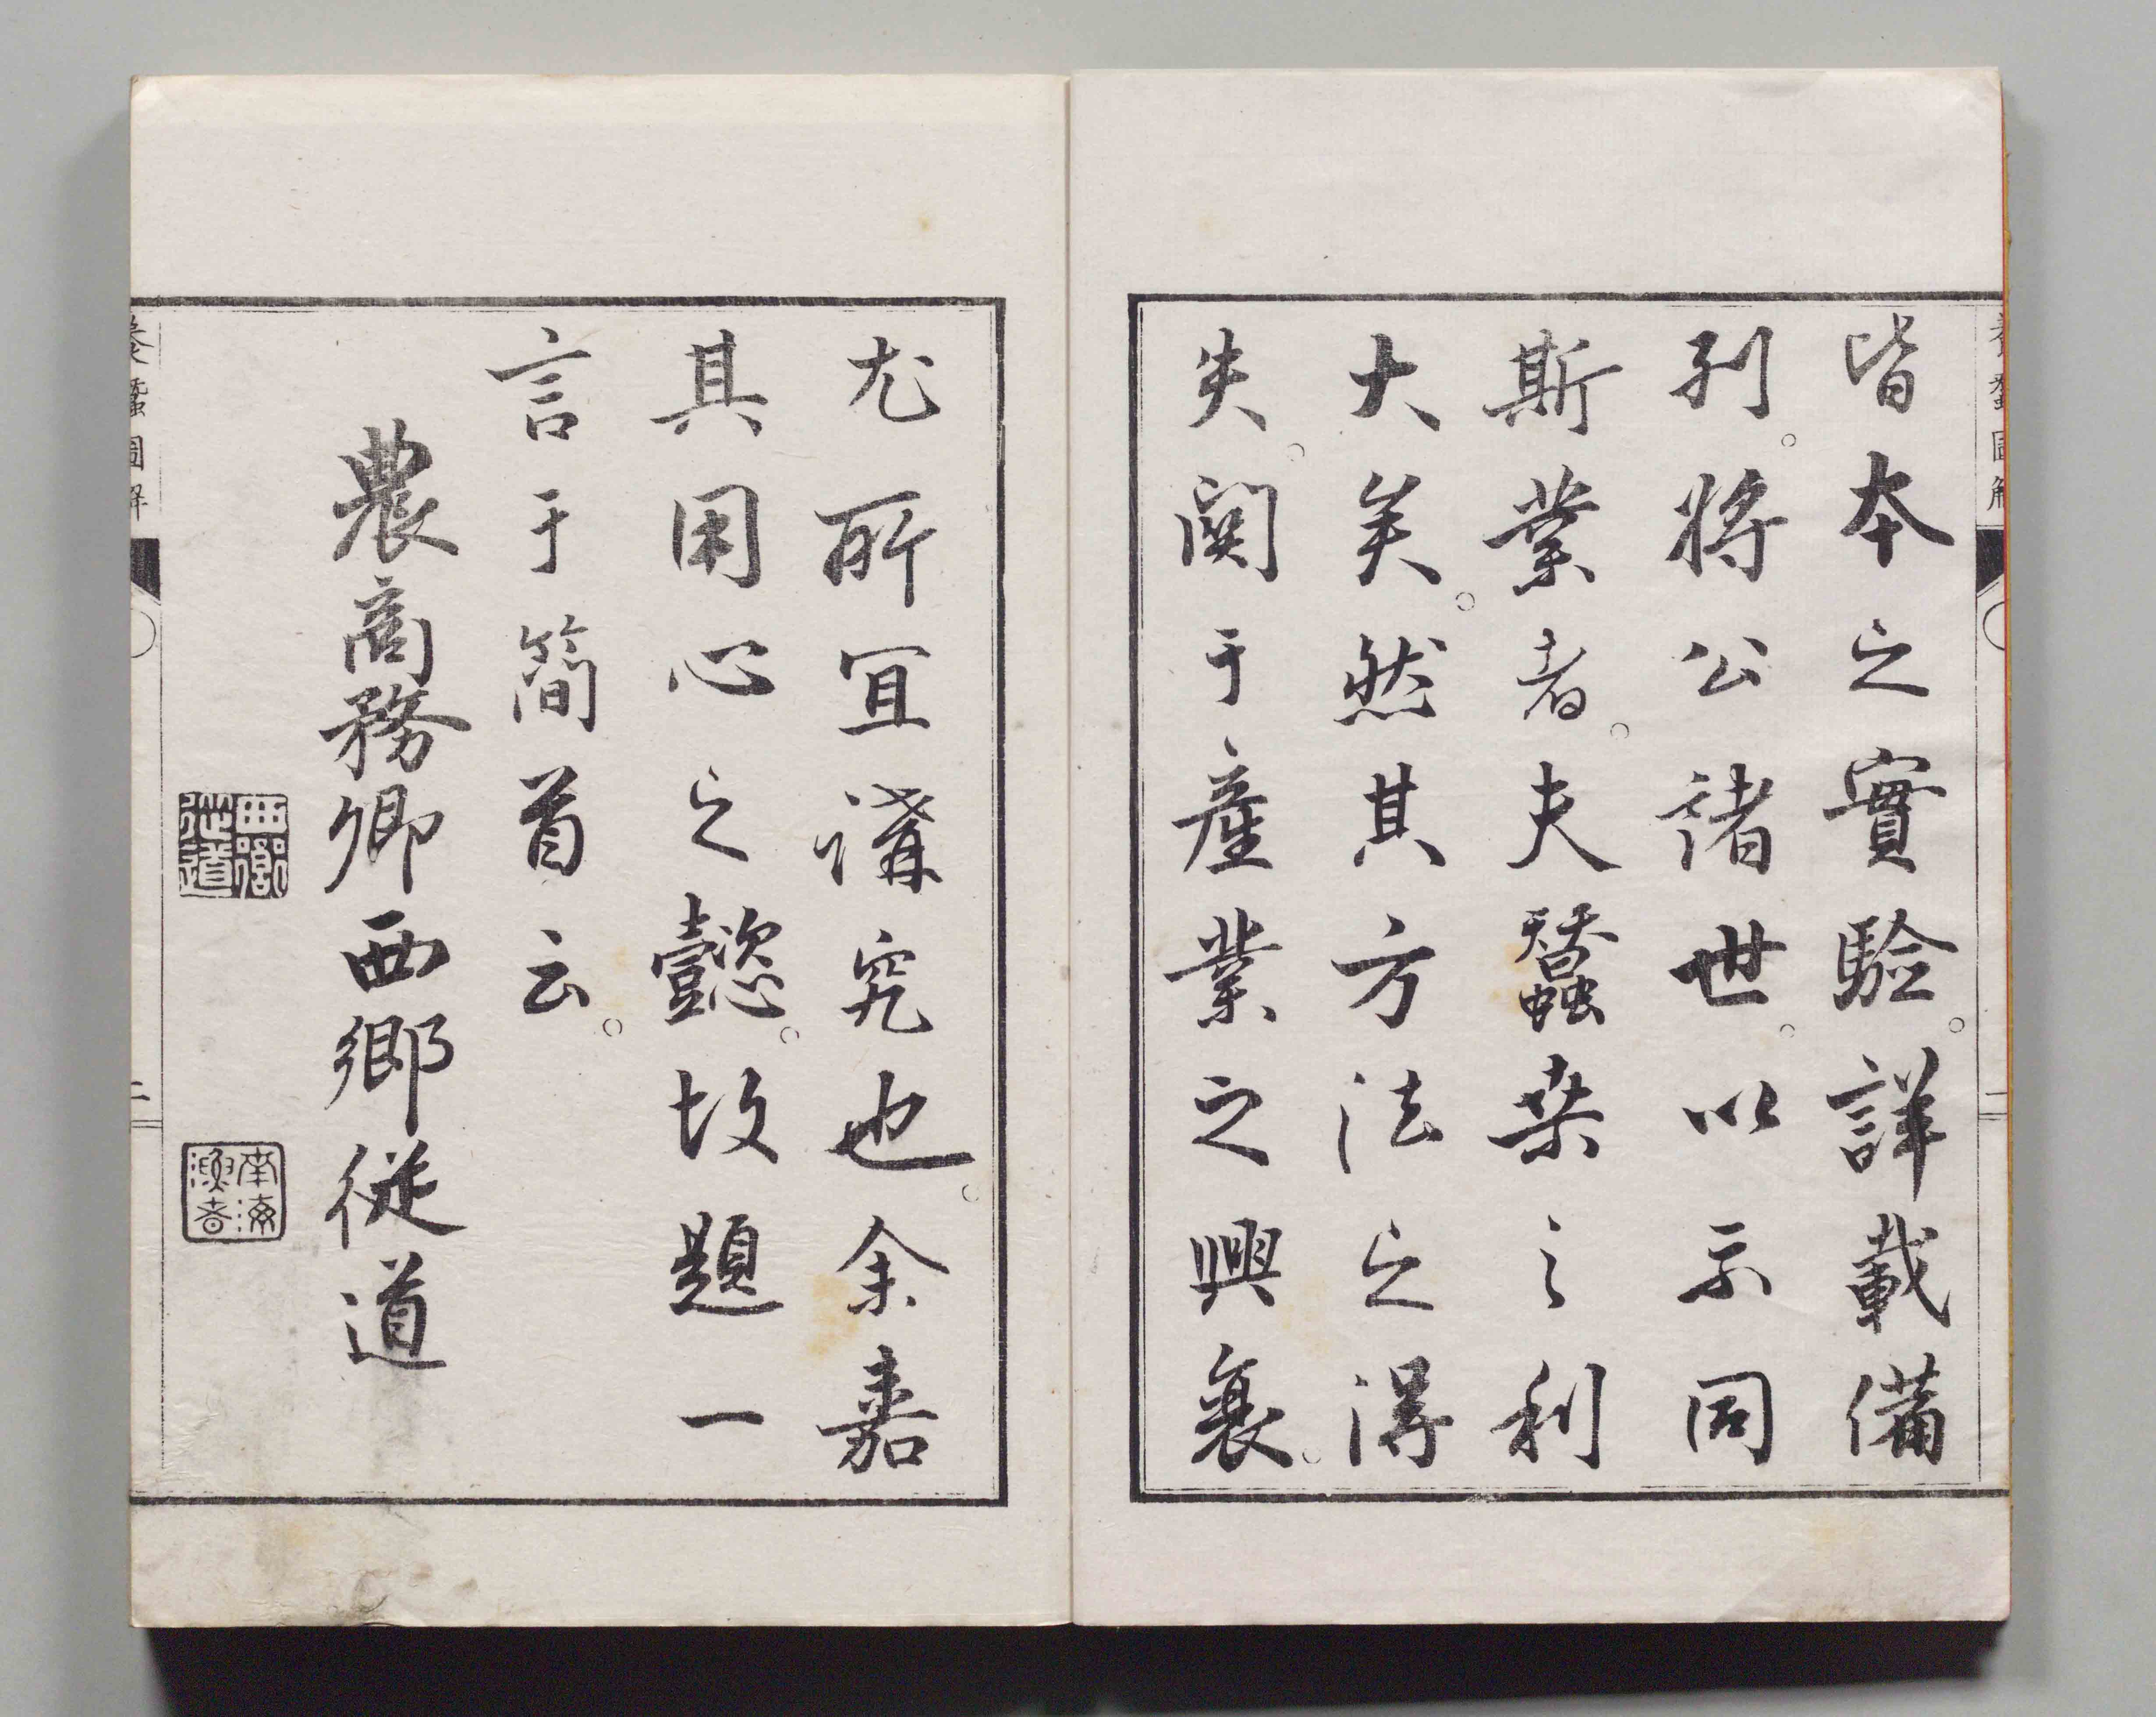 皆本之實驗。詳載備
列。將公諸世。以示同
斯業者。夫蠶桒之利
大矣。然其方法之得
失。関于產業之興衰。
尤所宜講究也。余嘉
其用心之懿。故題一
言于簡首云。
農商務卿西鄉從道
西鄉從道
南海漁者
養蠶圖解
二